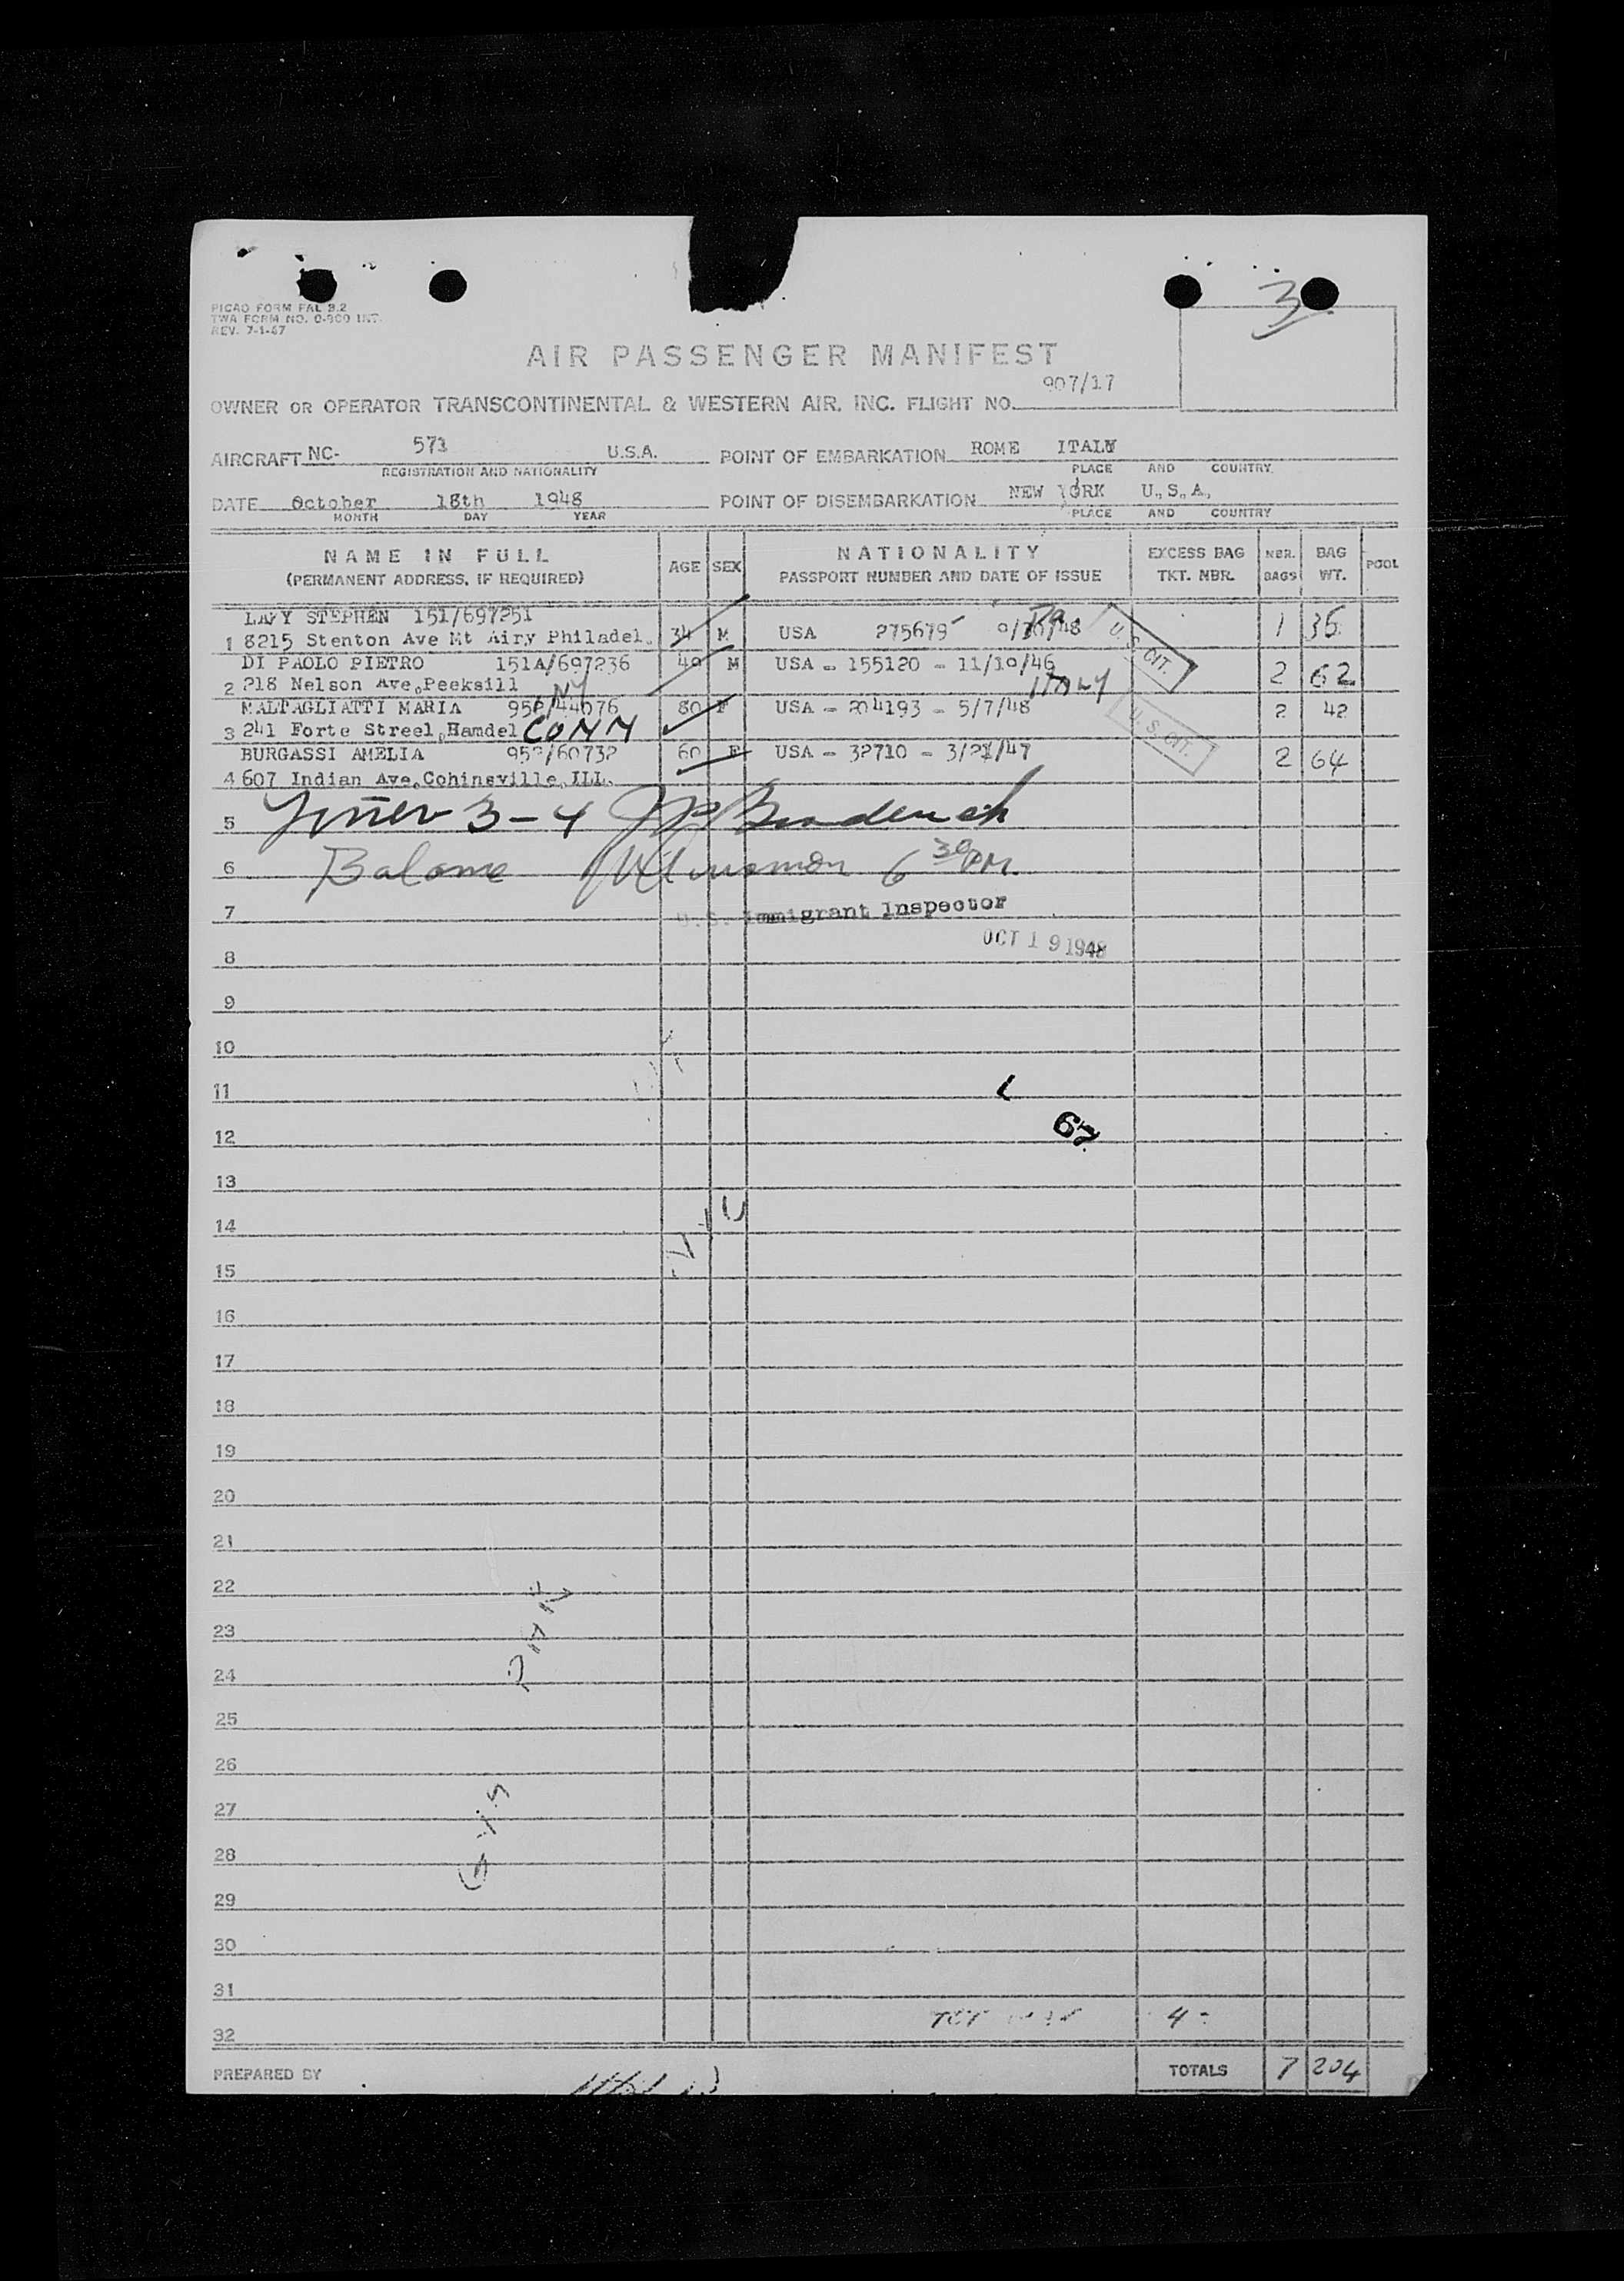 3
PICAO FORM FAL 3.2
TWA FORM NO. O-900 INT.
REV. 7-1-47
AIR PASSENGER MANIFEST
907/17
OWNER OR OPERATOR TRANSCONTINENTAL & WESTERN AIR, INC. FLIGHT NO.
AIRCRAFT NC- 571 U.S.A. POINT OF EMBARKATION ROME ITALY
REGISTRATION AND NATIONALITY PLACE AND COUNTRY
DATE October 18th 1948 POINT OF DISEMBARKATION NEW YORK U.S.A.
MONTH DAY YEAR PLACE AND COUNTRY
NAME IN FULL AGE SEX NATIONALITY EXCESS BAG NBR. BAG POOL
(PERMANENT ADDRESS, IF REQUIRED) PASSPORT NUMBER AND DATE OF ISSUE TKT. NBR. BAGS WT.
STEPHEN 151/697251
1 8215 Stenton Ave Mt Airy Philadel. 34 M USA 275679 Pa. U.S. CIT. 1 36
DI PAOLO PIETRO 151A/697236 40 M USA - 155120 - 11/10/46 2 62
2 218 Nelson Ave.Peeksill NY ITALY
MALTAGLIATTI MARIA 80 F USA - 204193 - 5/7/48 U.S. CIT. 2 42
3 241 Forte Streel,Hamdel CONN
BURGASSI AMELIA 952/60732 60 F USA - 32710 - 3/21/47 2 64
4 607 Indian Ave.Cohinsville,ILL.
5 3-4
6 6 30 PM.
7 U.S. Immigrant Inspector
OCT 19 1948
8
9
10
11
12 67
13
14
15
16
17
18
19
20
21
22
23
24
25
26
27
28
29
30
31
32
PREPARED BY TOTALS 7 204